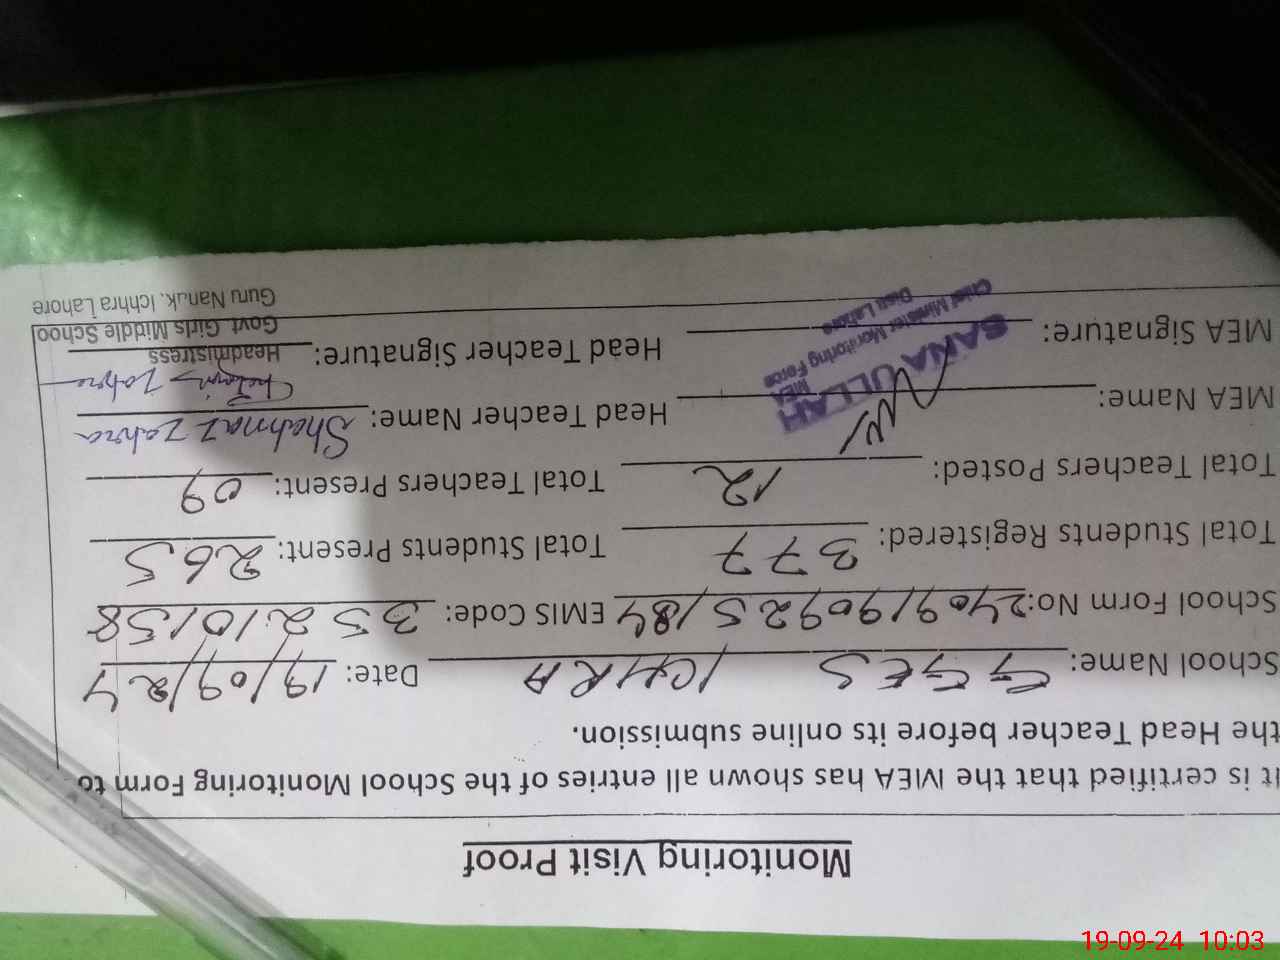 Monitoring Visit Proof
It is certified that the MEA has shown all entries of the School Monitoring Form to
the Head Teacher before its online submission.
School Name: GGES ICHRA Date: 19/09/24
School Form No: 2409190925/184 EMIS Code: 35210158
Total Students Registered: 377 Total Students Present: 265
Total Teachers Posted: 12 Total Teachers Present: 09
MEA Name: Head Teacher Name: Shahnaz Zahra
MEA Signature: Head Teacher Signature:
SANA ULLAH
MEA
Chief Minister Monitoring Force
Distt. Lahore
Headmistress
Govt. Girls Middle Schoo
Guru Nanak, Ichhra Lahore
19-09-24 10:03